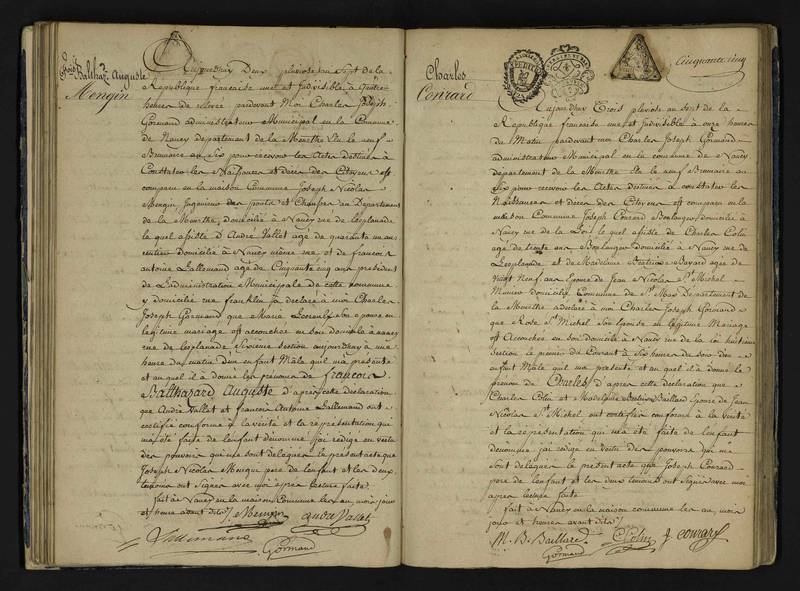 fçois Balthazr Auguste
Mengin
Aujourdhuy Deux pluviose an Sept de la
République française une et indivisible à quatre
heures de relevé pardevant Moi Charles Joseph
Gormand administrateur Municipal en la Commune
de Nancy Département de la Meurthe Elu le neuf
Brumaire an Six pour recevoir les Actes destinés à
Constater les Naissances et décès des Citoyens est
comparu en la maison Commune Joseph Nicolas
Mengin Ingénieur des ponts et Chaussées au Departement
de la Meurthe domicilié à Nancy rue de lesplanade
le quel assisté d'André Vallet agé de quarante un ans
rentier domicilié à Nancy même rue et de francois
antoine Lallemand age de Cinquante cinq ans président
de L'administration Municipale de cette commune
y domicilié rue franklin ja déclaré à moi Charles
Joseph Gormand que Marie son epouse en
legitime mariage est accouchée en son domicile à nancy
rue de lesplanade Sixieme section aujourdhuy à une
heure du matin d'un enfant Mâle quil ma présenté
et au quel il a donné les prenoms de francois
Balthazard Auguste d'après cette déclaration
que André Vallet et francois Antoine Lallemand ont
certifié conforme à la vérité et la représentation qui
ma été faite de lenfant denommé jai rédigé en vertu
des pouvoirs qui me sont délégués le présent acte que
Joseph Nicolas Mengin pere de lenfant et les deux
temoins ont Signés avec moi après lecture faite
fait à Nancy en la maison Commune les an, mois jour
et heures avant dits J. Mengin andré Vallet
Lallemand
Gormand
Cinquante cinq
Charles
Conrard
Aujourdhuy Trois pluviose an sept de la
République française une et indivisible à onze heures
du Matin pardevant moi Charles Joseph Gormand
administrateur Municipal en la commune de Nancy
département de la Meurthe Elu le neuf Brumaire an
Six pour recevoir les Actes destinés à constater les
Naissances et décès des Citoyens est comparu en la
maison Commune Joseph Conrard Boulanger domicilié à
Nancy rue de la Loi le quel assisté de Charles Colin
agé de trente ans Boulanger domicilié à Nancy rue de
Lesplanade et de Madelaine agée de
vingt Neuf ans Epouse de Jean Nicolas St Michel
domicilié Commune de St Max Département de
la Meurthe a déclaré à moi Charles Joseph Gormand
que Rose St Michel Son Epouse en légitime Mariage
est Accouchée en son domicile à Nancy rue de la loi huitieme
section le premier du Courant à Six heures du soir d'un
enfant Mâle quil ma présenté et au quel il a donné le
prenom de Charles d'après cette déclaration que
Charles Colin et Madelaine Baillard Epouse de Jean
Nicolas St Michel ont certifiés conforme à la vérité
et la représentation qui ma été faite de lenfant
denommé jai rédigé en vertu des pouvoirs qui me
sont délégués le présent acte que Joseph Conrard
pere de lenfant et les deux temoins ont Signés avec moi
après lecture faite
fait à Nancy en la maison commune les an, mois
jour et heures avant dits
M. B. Baillard Colin J. Conrard
Gormand